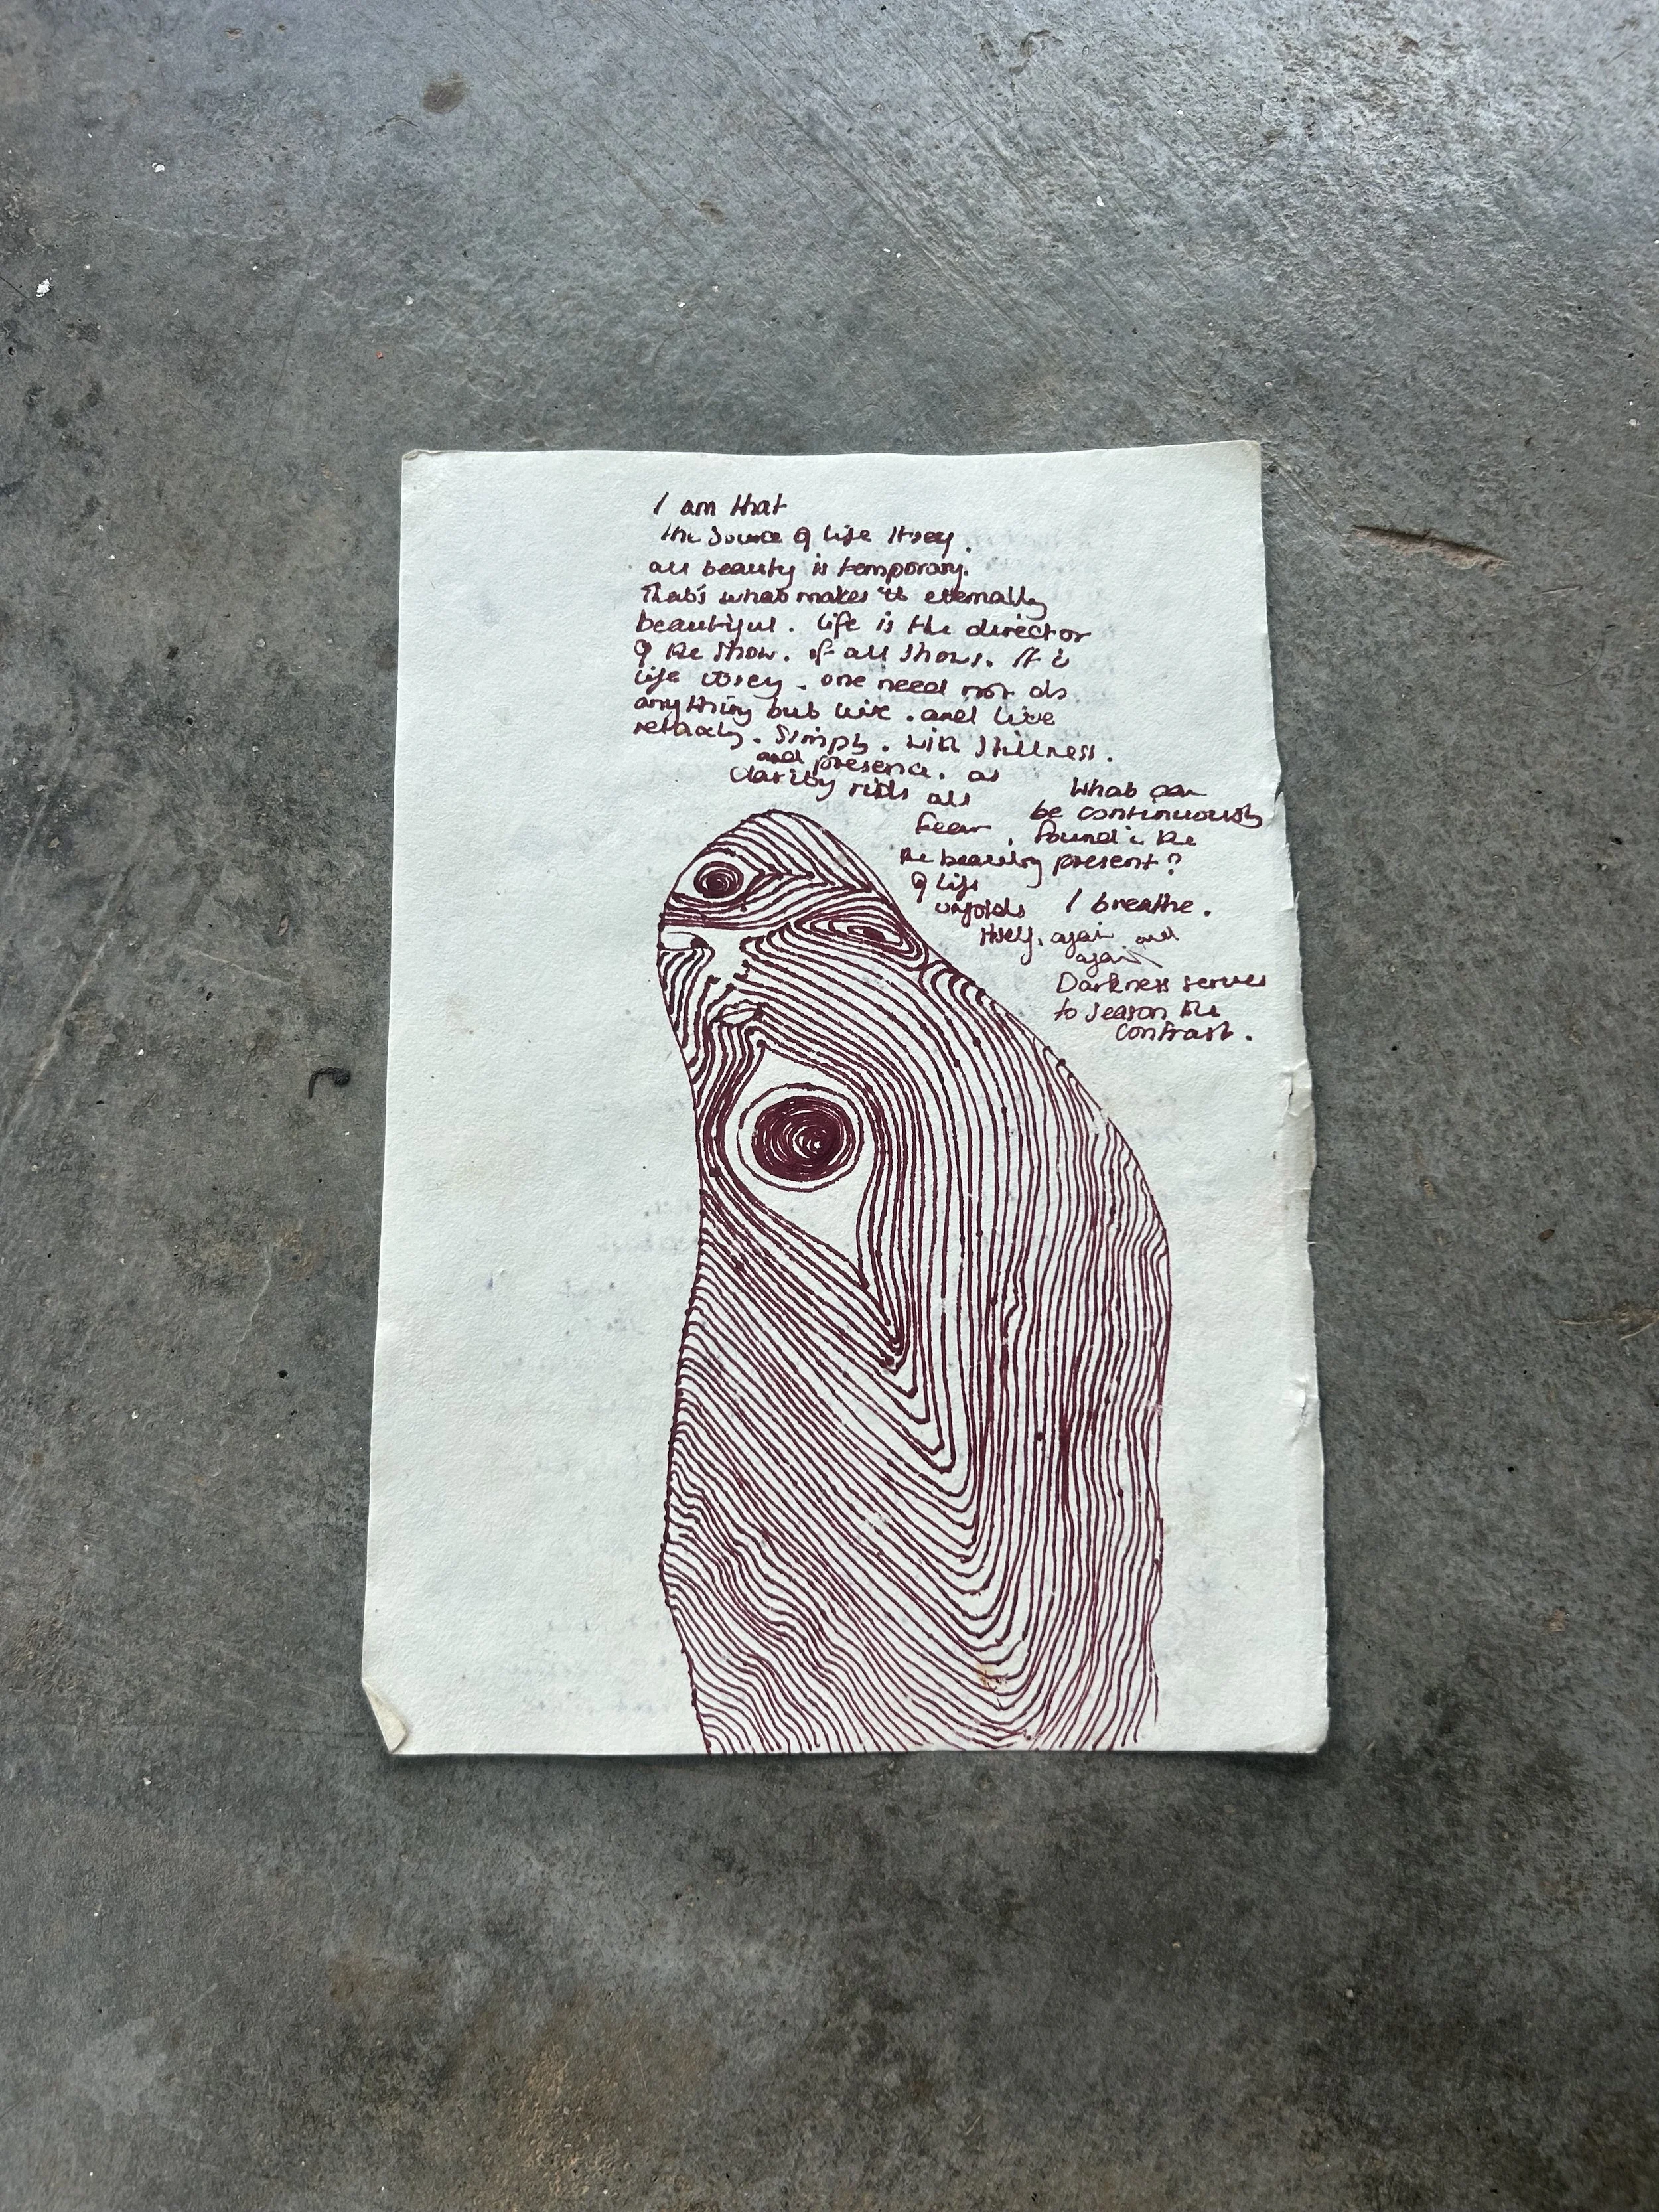 I am that
the source of life itself.
all beauty is temporary.
That's what makes it eternally
beautiful. Life is the director
of the show. of all shows. It is
life itself. one need not do
anything but live. and live
Simply. with stillness.
and presence. as
clarity rids all
fear.
the beauty
of life
unfolds
itself. again and
again
What can
be continuously
found in the
present?
I breathe.
Darkness serves
to season the
contrast.